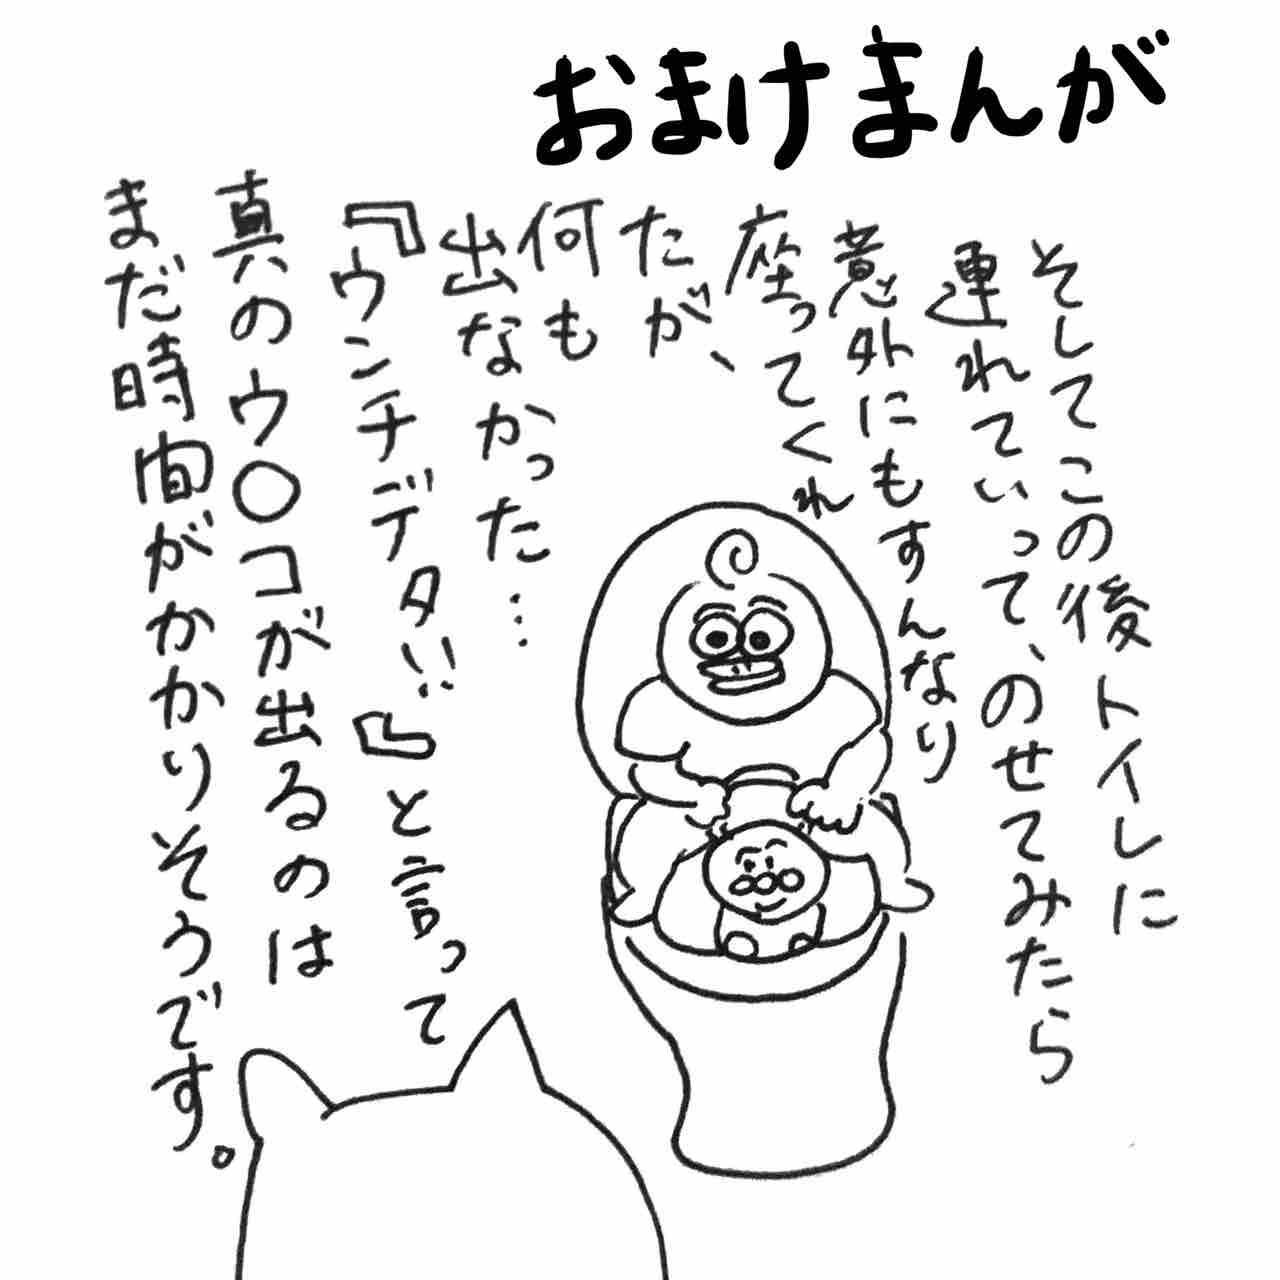 おまけまんが
そしてこの後トイレに
連れていって、のせてみたら
意外にもすんなり
座ってくれ
たが、
何も
出なかった…
『ウンチデタ!!』と言って
真のウ〇コが出るのは
まだ時間がかかりそうです。